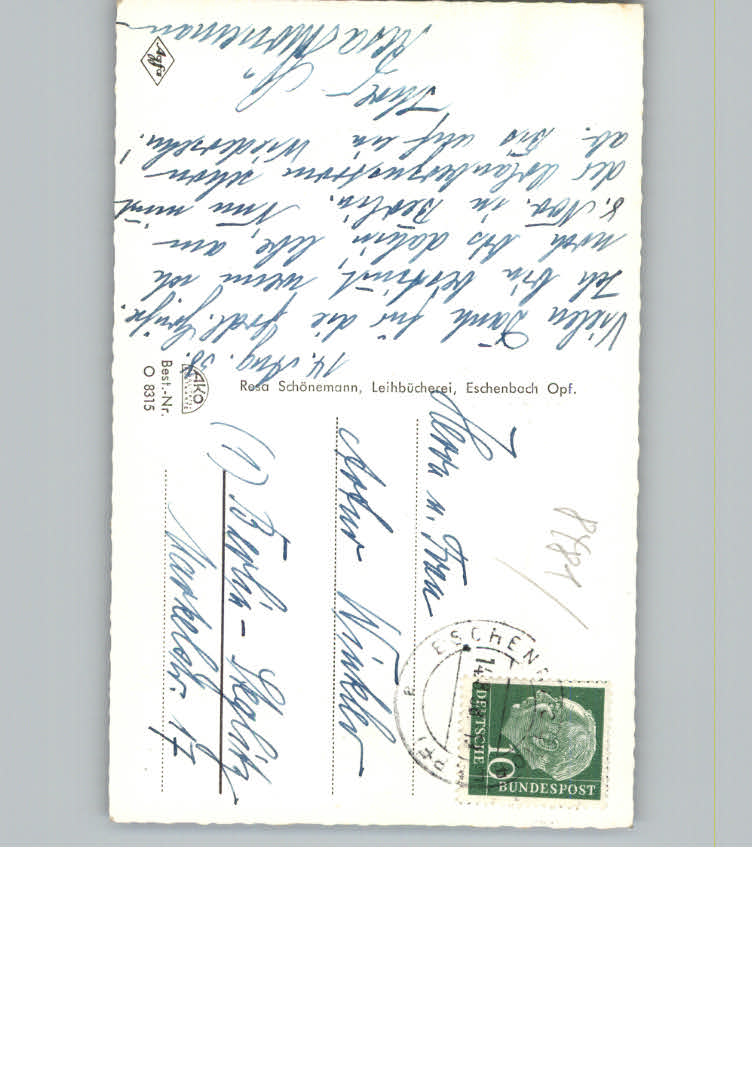 14. Aug. 58.
Vielen Dank für die frdl. Grüße.
Ich bin bestimmt, wenn ich
noch bis dahin lebe, am
8. Nov. in Berlin. Nun nimmt
der Urlauberzustrom schon
ab. Bis auf ein Wiedersehn.
Ihre
Rosa Schönemann
Agfa
AKO
Best.-Nr.
O 8315
Rosa Schönemann, Leihbücherei, Eschenbach Opf.
Herrn u. Frau
Artur Winkler
(1) Berlin-Steglitz
Markelstr. 17
8481
ESCHENB
14
10
DEUTSCHE
BUNDESPOST